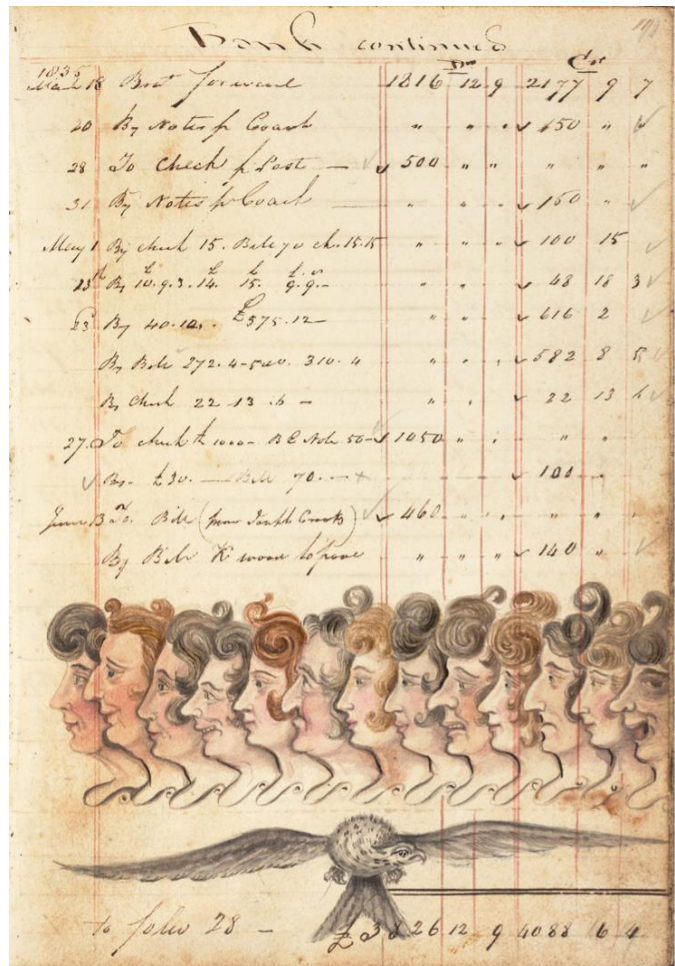 Bank continued
Dr Cr
1835
March 18 Brot forward 1816 12 9 2177 9 7
20 By Notes p Coach " " " 450 " "
28 To Check p Post — 500 " " " " "
31 By Notes p Coach " " " 150 "
May 1 By check 15. Bill 70 ch. 15.15 " " 100 15
23th By 10.9.3. 14. 15. 9.9- " " 48 18 3
23 By 40.10. £575.12- " " 616 2
By Bills 272.4- 310.4 " " " 582 8 5
By Check 22 13 .6 - " " 22 13 6
27. To check 1000- B C Note 50- 1050 " " " "
By £30. — Bill 70. — 100
June 13 To Bill (from Joseph Crook) 460 " " " " "
By Bill wood " " " 140
to folio 28 - £3826 12 9 4088 6 4